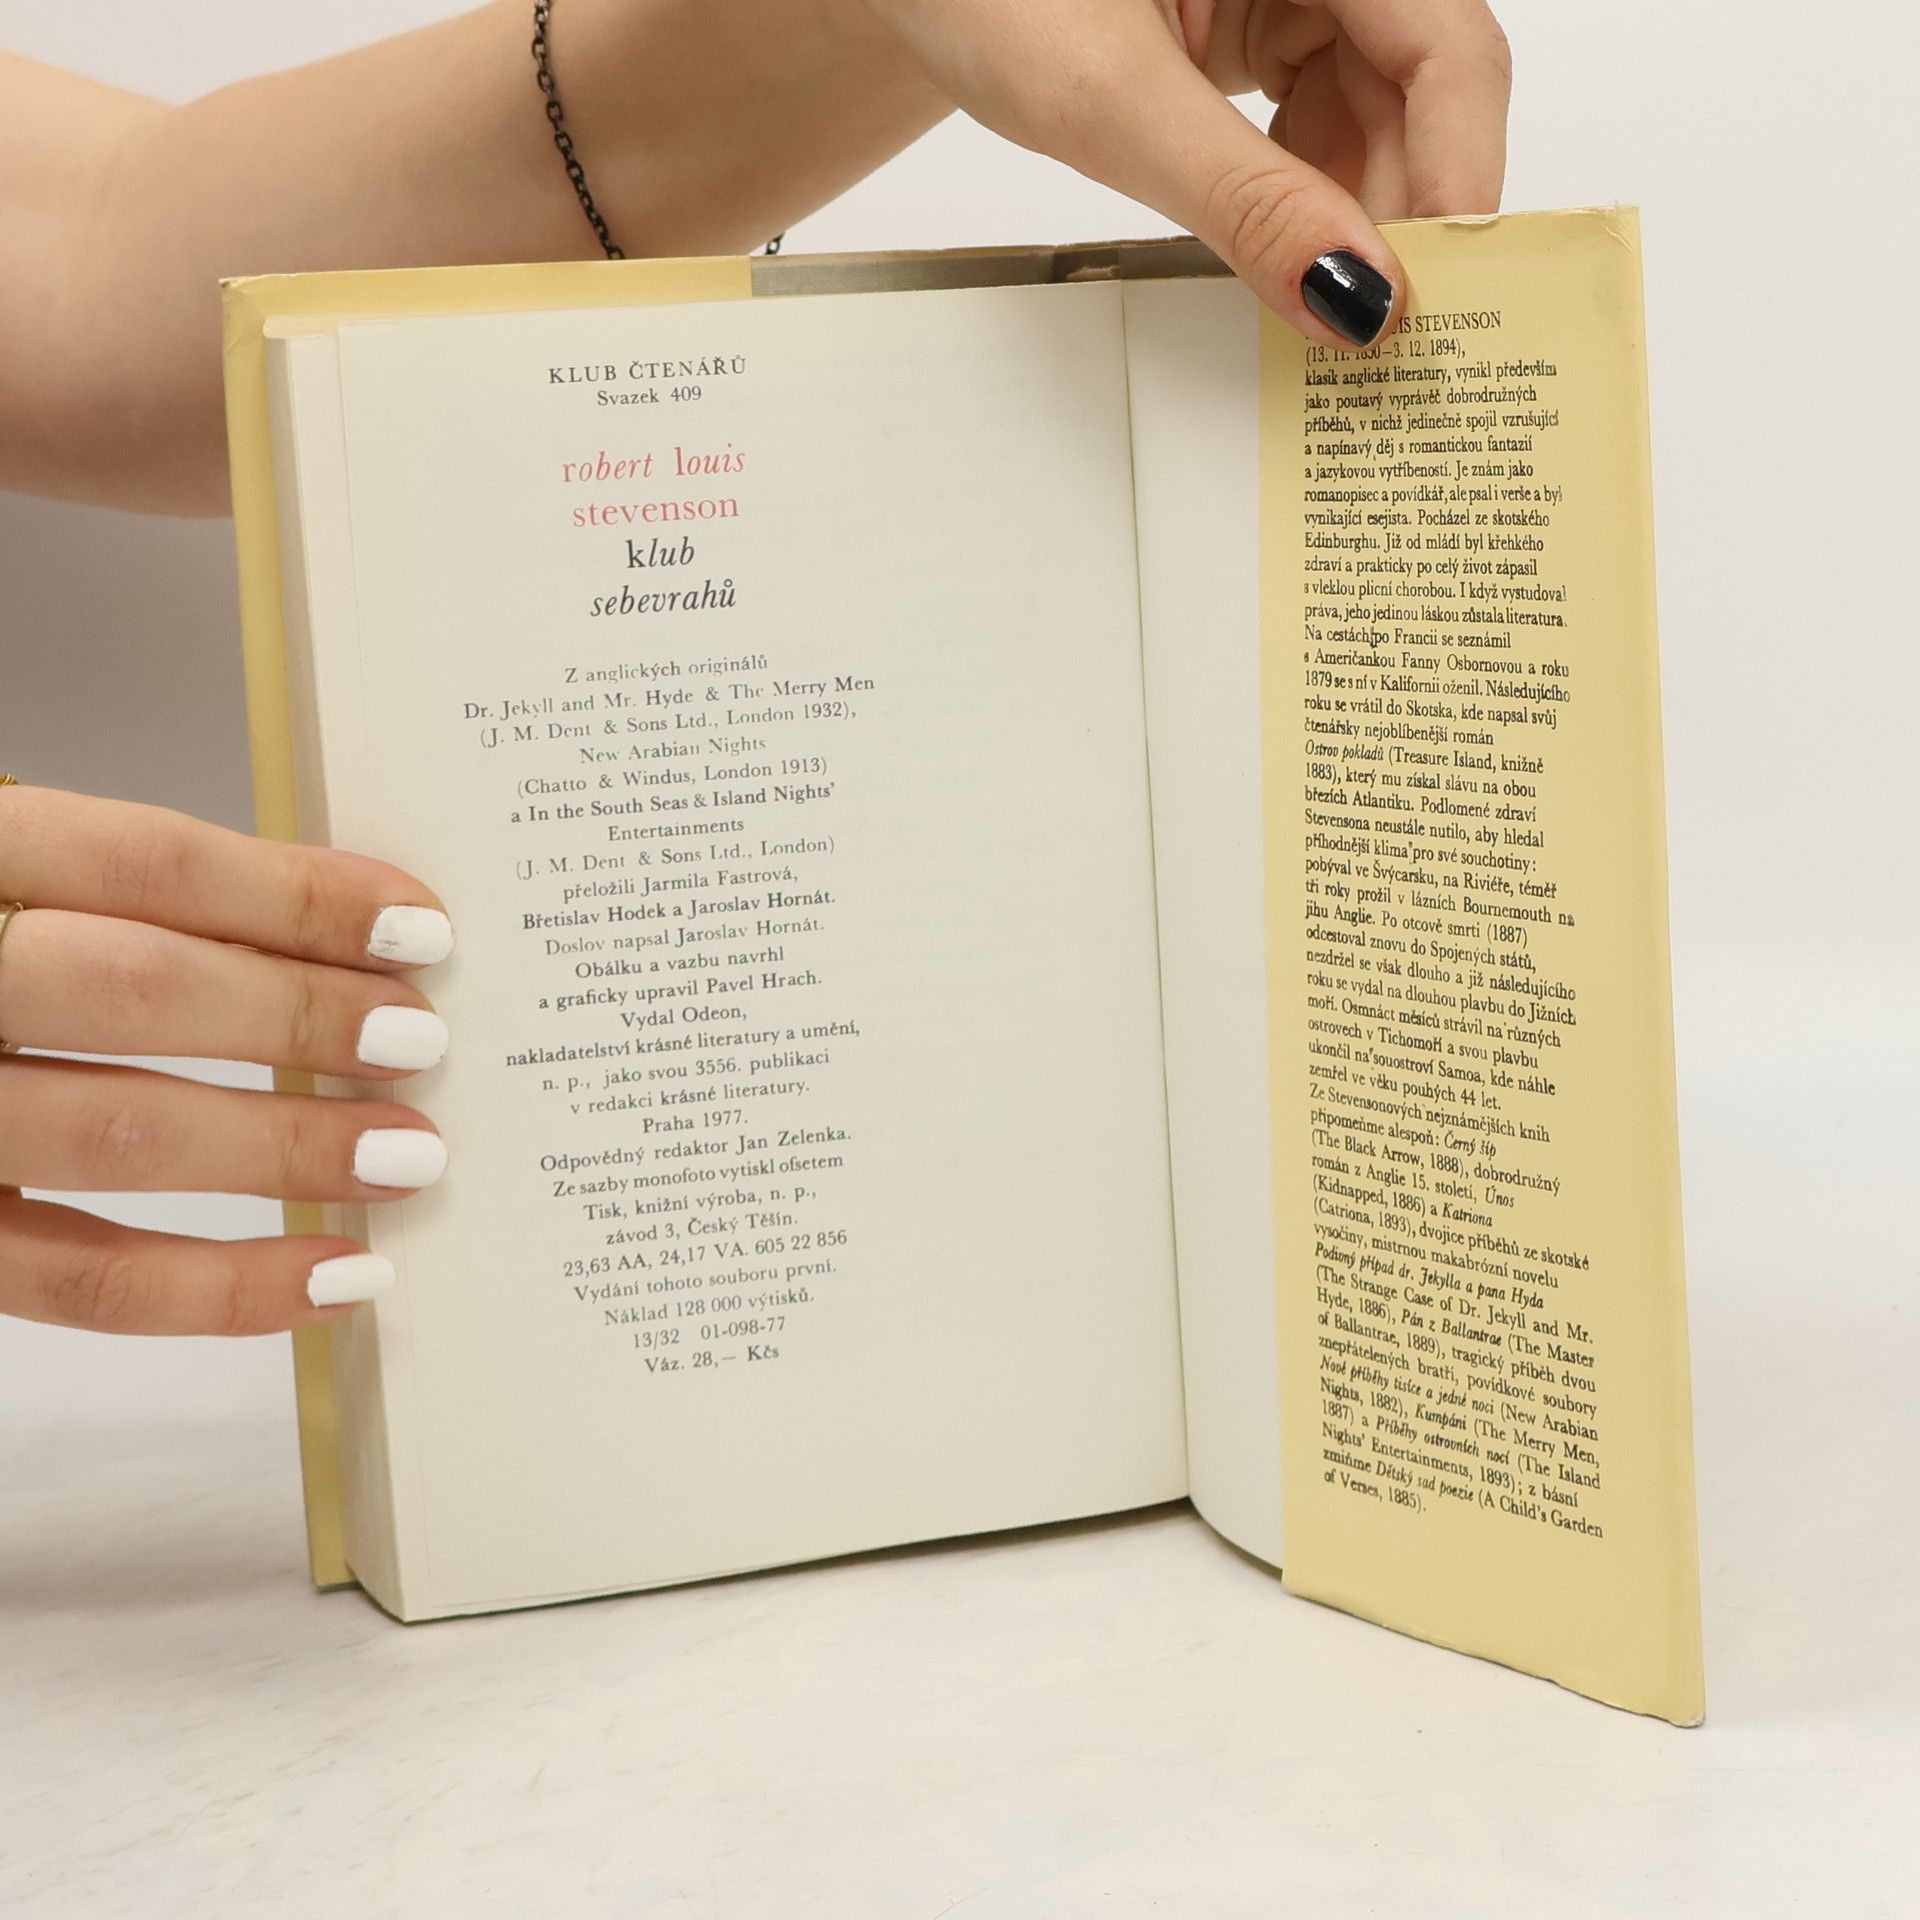 KLUB ČTENÁŘŮ
Svazek 409
robert louis
stevenson
klub
sebevrahů
Z anglických originálů
Dr. Jekyll and Mr. Hyde & The Merry Men
(J. M. Dent & Sons Ltd., London 1932),
New Arabian Nights
(Chatto & Windus, London 1913)
a In the South Seas & Island Nights'
Entertainments
(J. M. Dent & Sons Ltd., London)
přeložili Jarmila Fastrová,
Břetislav Hodek a Jaroslav Hornát.
Doslov napsal Jaroslav Hornát.
Obálku a vazbu navrhl
a graficky upravil Pavel Hrach.
Vydal Odeon,
nakladatelství krásné literatury a umění,
n. p., jako svou 3556. publikaci
v redakci krásné literatury.
Praha 1977.
Odpovědný redaktor Jan Zelenka.
Ze sazby monofoto vytiskl ofsetem
Tisk, knižní výroba, n. p.,
závod 3, Český Těšín.
23,63 AA, 24,17 VA. 605 22 856
Vydání tohoto souboru první.
Náklad 128 000 výtisků.
13/32 01-098-77
Váz. 28,— Kčs
STEVENSON
(13. 11. 1850–3. 12. 1894),
klasik anglické literatury, vynikl především
jako poutavý vyprávěč dobrodružných
příběhů, v nichž jedinečně spojil vzrušující
a napínavý děj s romantickou fantazií
a jazykovou vytříbeností. Je znám jako
romanopisec a povídkář, ale psal i verše a byl
vynikající esejista. Pocházel ze skotského
Edinburghu. Již od mládí byl křehkého
zdraví a prakticky po celý život zápasil
s vleklou plicní chorobou. I když vystudoval
práva, jeho jedinou láskou zůstala literatura.
Na cestách po Francii se seznámil
s Američankou Fanny Osbornovou a roku
1879 se s ní v Kalifornii oženil. Následujícího
roku se vrátil do Skotska, kde napsal svůj
čtenářsky nejoblíbenější román
Ostrov pokladů (Treasure Island, knižně
1883), který mu získal slávu na obou
březích Atlantiku. Podlomené zdraví
Stevensona neustále nutilo, aby hledal
příhodnější klima pro své souchotiny:
pobýval ve Švýcarsku, na Riviéře, téměř
tři roky prožil v lázních Bournemouth na
jihu Anglie. Po otcově smrti (1887)
odcestoval znovu do Spojených států,
nezdržel se však dlouho a již následujícího
roku se vydal na dlouhou plavbu do Jižních
moří. Osmnáct měsíců strávil na různých
ostrovech v Tichomoří a svou plavbu
ukončil na souostroví Samoa, kde náhle
zemřel ve věku pouhých 44 let.
Ze Stevensonových nejznámějších knih
připomeňme alespoň: Černý šíp
(The Black Arrow, 1888), dobrodružný
román z Anglie 15. století, Únos
(Kidnapped, 1886) a Katriona
(Catriona, 1893), dvojice příběhů ze skotské
vysočiny, mistrnou makabrózní novelu
Podivný případ dr. Jekylla a pana Hyda
(The Strange Case of Dr. Jekyll and Mr.
Hyde, 1886), Pán z Ballantrae (The Master
of Ballantrae, 1889), tragický příběh dvou
znepřátelených bratří, povídkové soubory
Nové příběhy tisíce a jedné noci (New Arabian
Nights, 1882), Kumpáni (The Merry Men,
1887) a Příběhy ostrovních nocí (The Island
Nights' Entertainments, 1893); z básní
zmiňme Dětský sad poezie (A Child's Garden
of Verses, 1885).